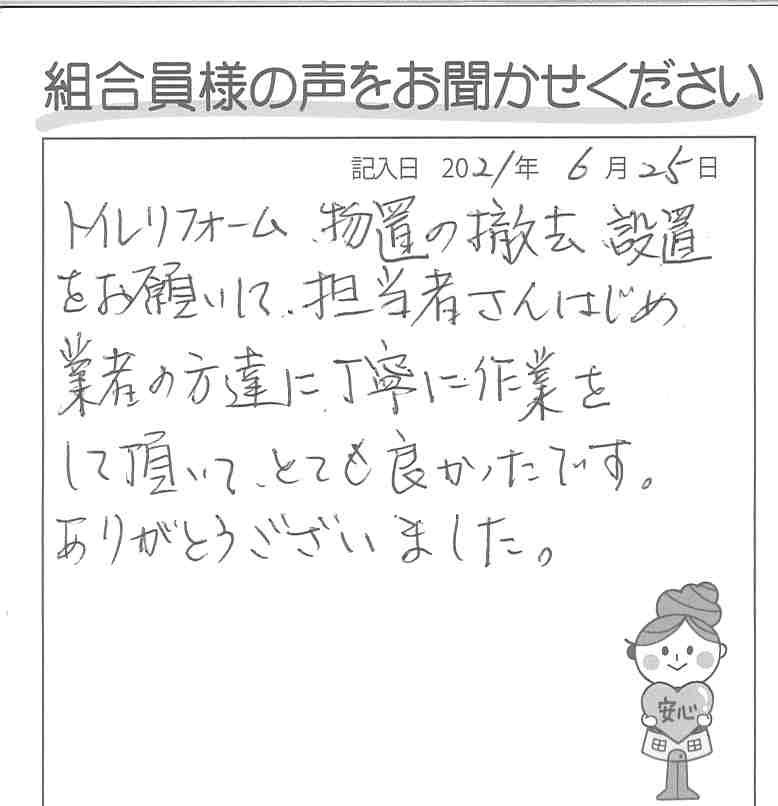 組合員様の声をお聞かせください
記入日 2021年 6月25日
トイレリフォーム、物置の撤去、設置
をお願いして、担当者さんはじめ
業者の方達に、丁寧に作業を
して頂いて、とても良かったです。
ありがとうございました。
安心